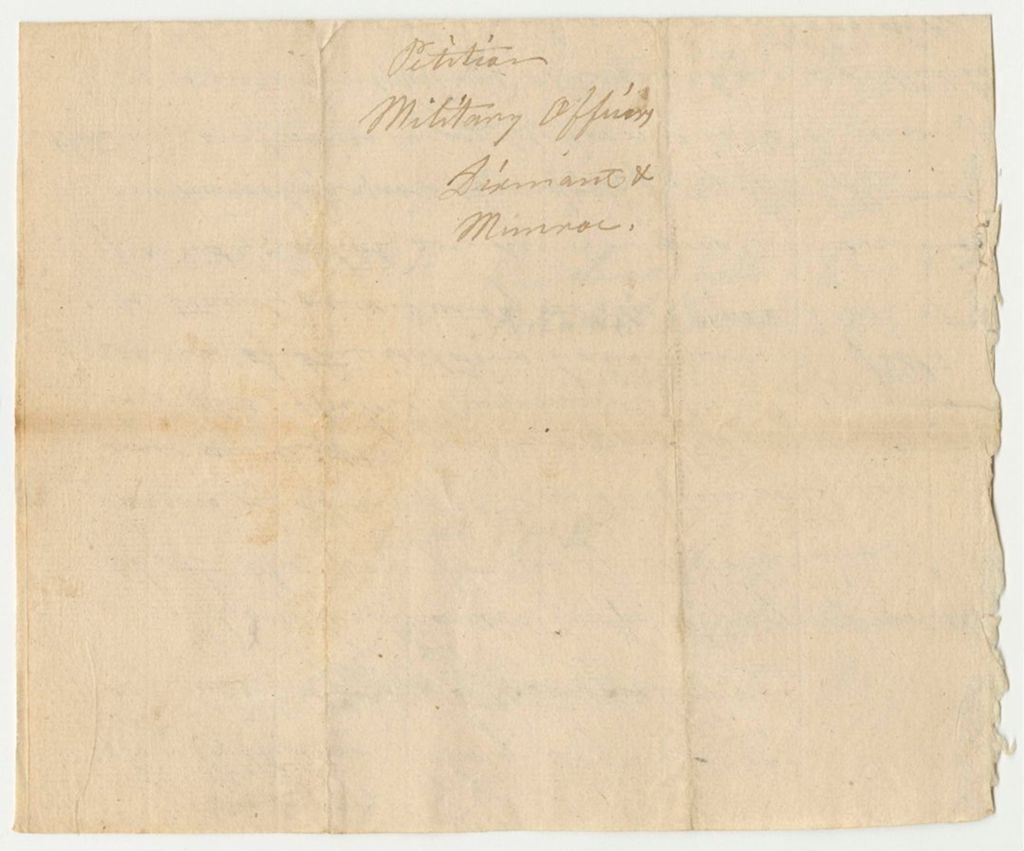 Petition
Military Officers
Dixmont &
Munroe.